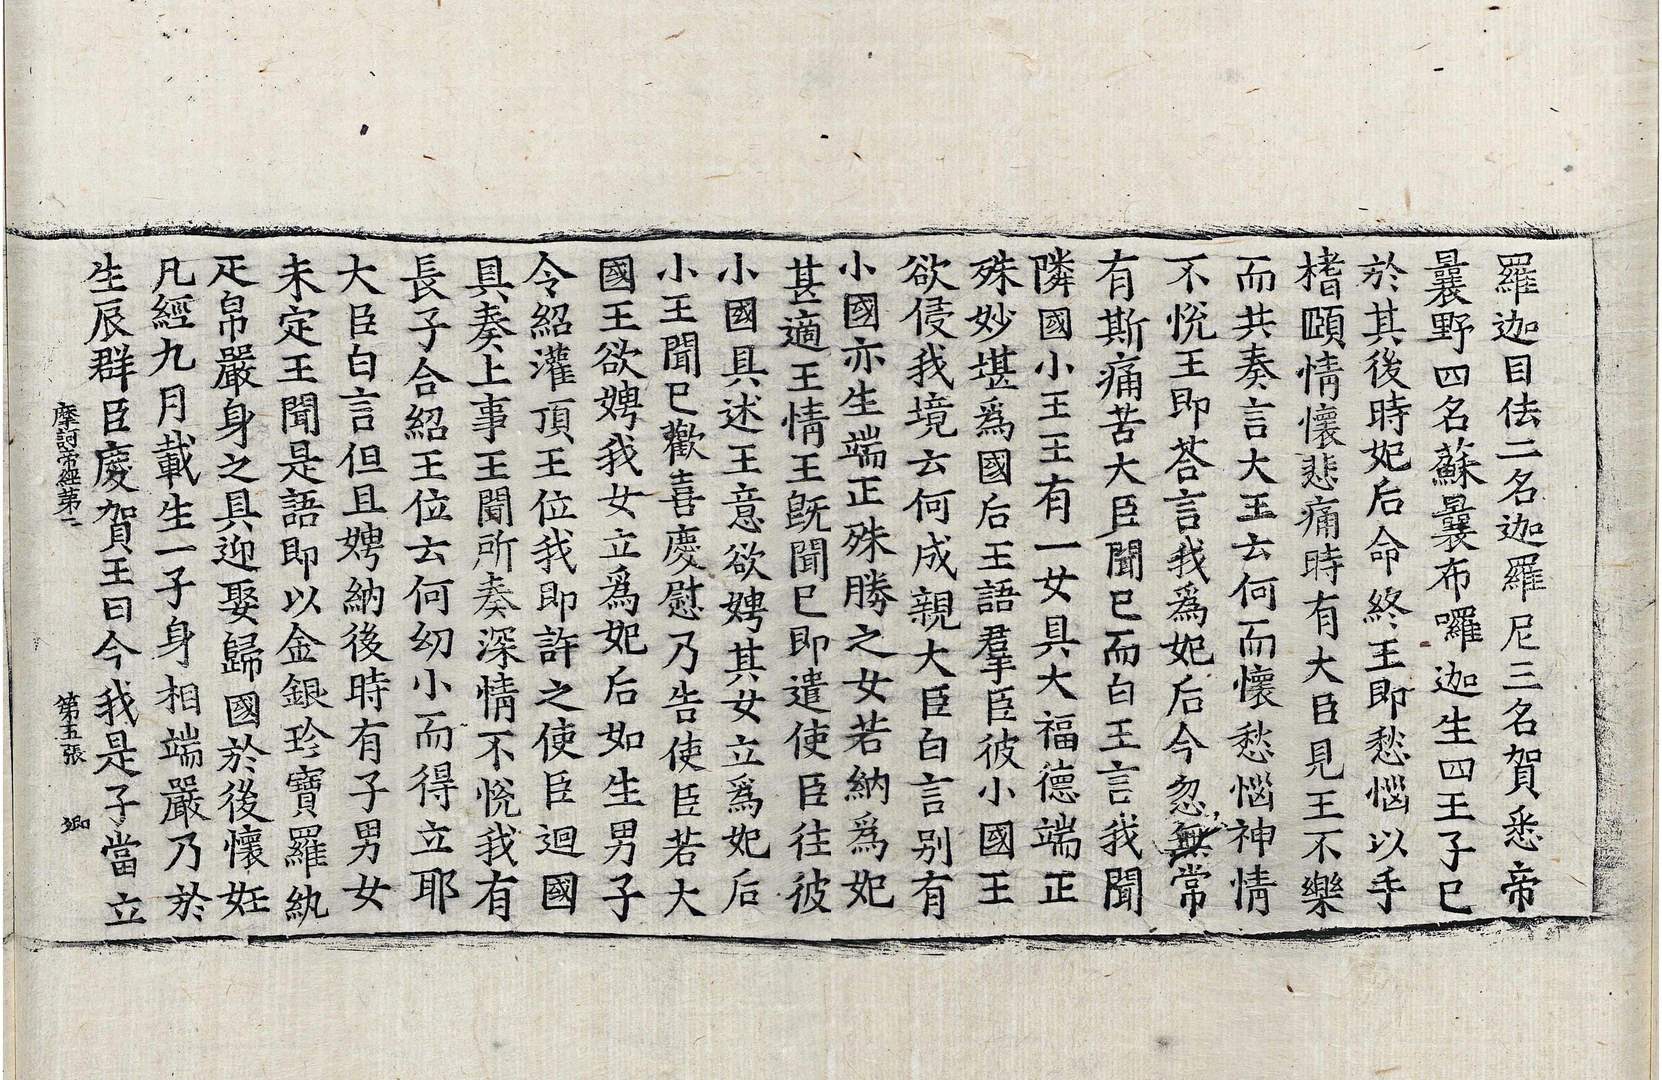 羅迦目佉二名迦羅尼三名賀悉帝
曩野四名蘇曩布囉迦生四王子已
於其後時妃后命終王即愁惱以手
榰頤情懷悲痛時有大臣見王不樂
而共奏言大王云何而懷愁惱神情
不悅王即荅言我爲妃后今忽無常
有斯痛苦大臣聞已而白王言我聞
隣國小王王有一女具大福德端正
殊妙堪爲國后王語羣臣彼小國王
欲侵我境云何成親大臣白言别有
小國亦生端正殊勝之女若納爲妃
甚適王情王旣聞已即遣使臣往彼
小國具述王意欲娉其女立爲妃后
小王聞已歡喜慶慰乃告使臣若大
國王欲娉我女立爲妃后如生男子
令紹灌頂王位我即許之使臣迴國
具奏上事王聞所奏深情不悅我有
長子合紹王位云何幼小而得立耶
大臣白言但且娉納後時有子男女
未定王聞是語即以金銀珍寶羅紈
疋帛嚴身之具迎娶歸國於後懷妊
凡經九月載生一子身相端嚴乃於
生辰群臣慶賀王曰今我是子當立
摩訶帝經第二 第五張 卿